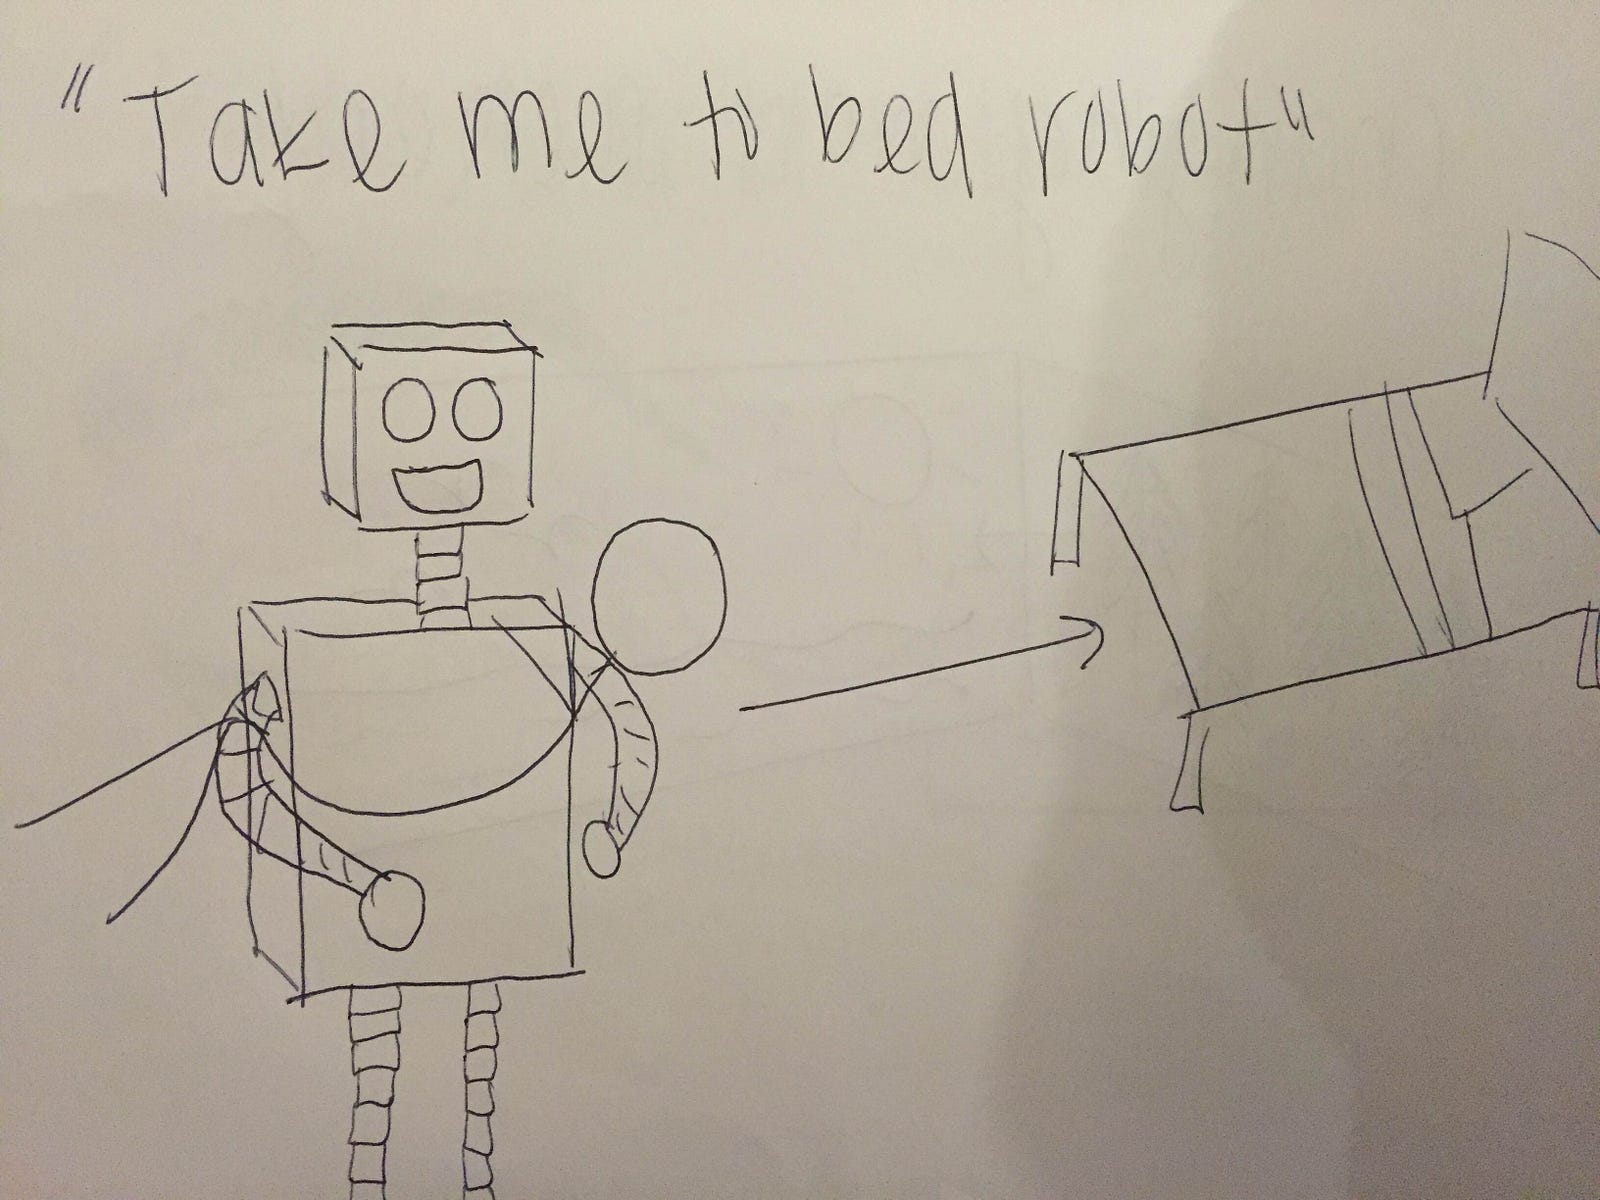 "Take me to bed robot"